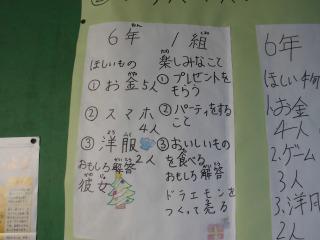 6年 1組
ほしいもの 楽しみなこと
①お金5人 ①プレゼントを
もらう
②スマホ ②パーティをする
4人 こと
③洋服 ③おいしいもの
2人 を食べる
おもしろ解答 おもしろ解答
彼女 ドラエモンを
つくって売る
6年
ほしい物
1.お金
4人
2.ゲーム
3人
3.洋服
2人